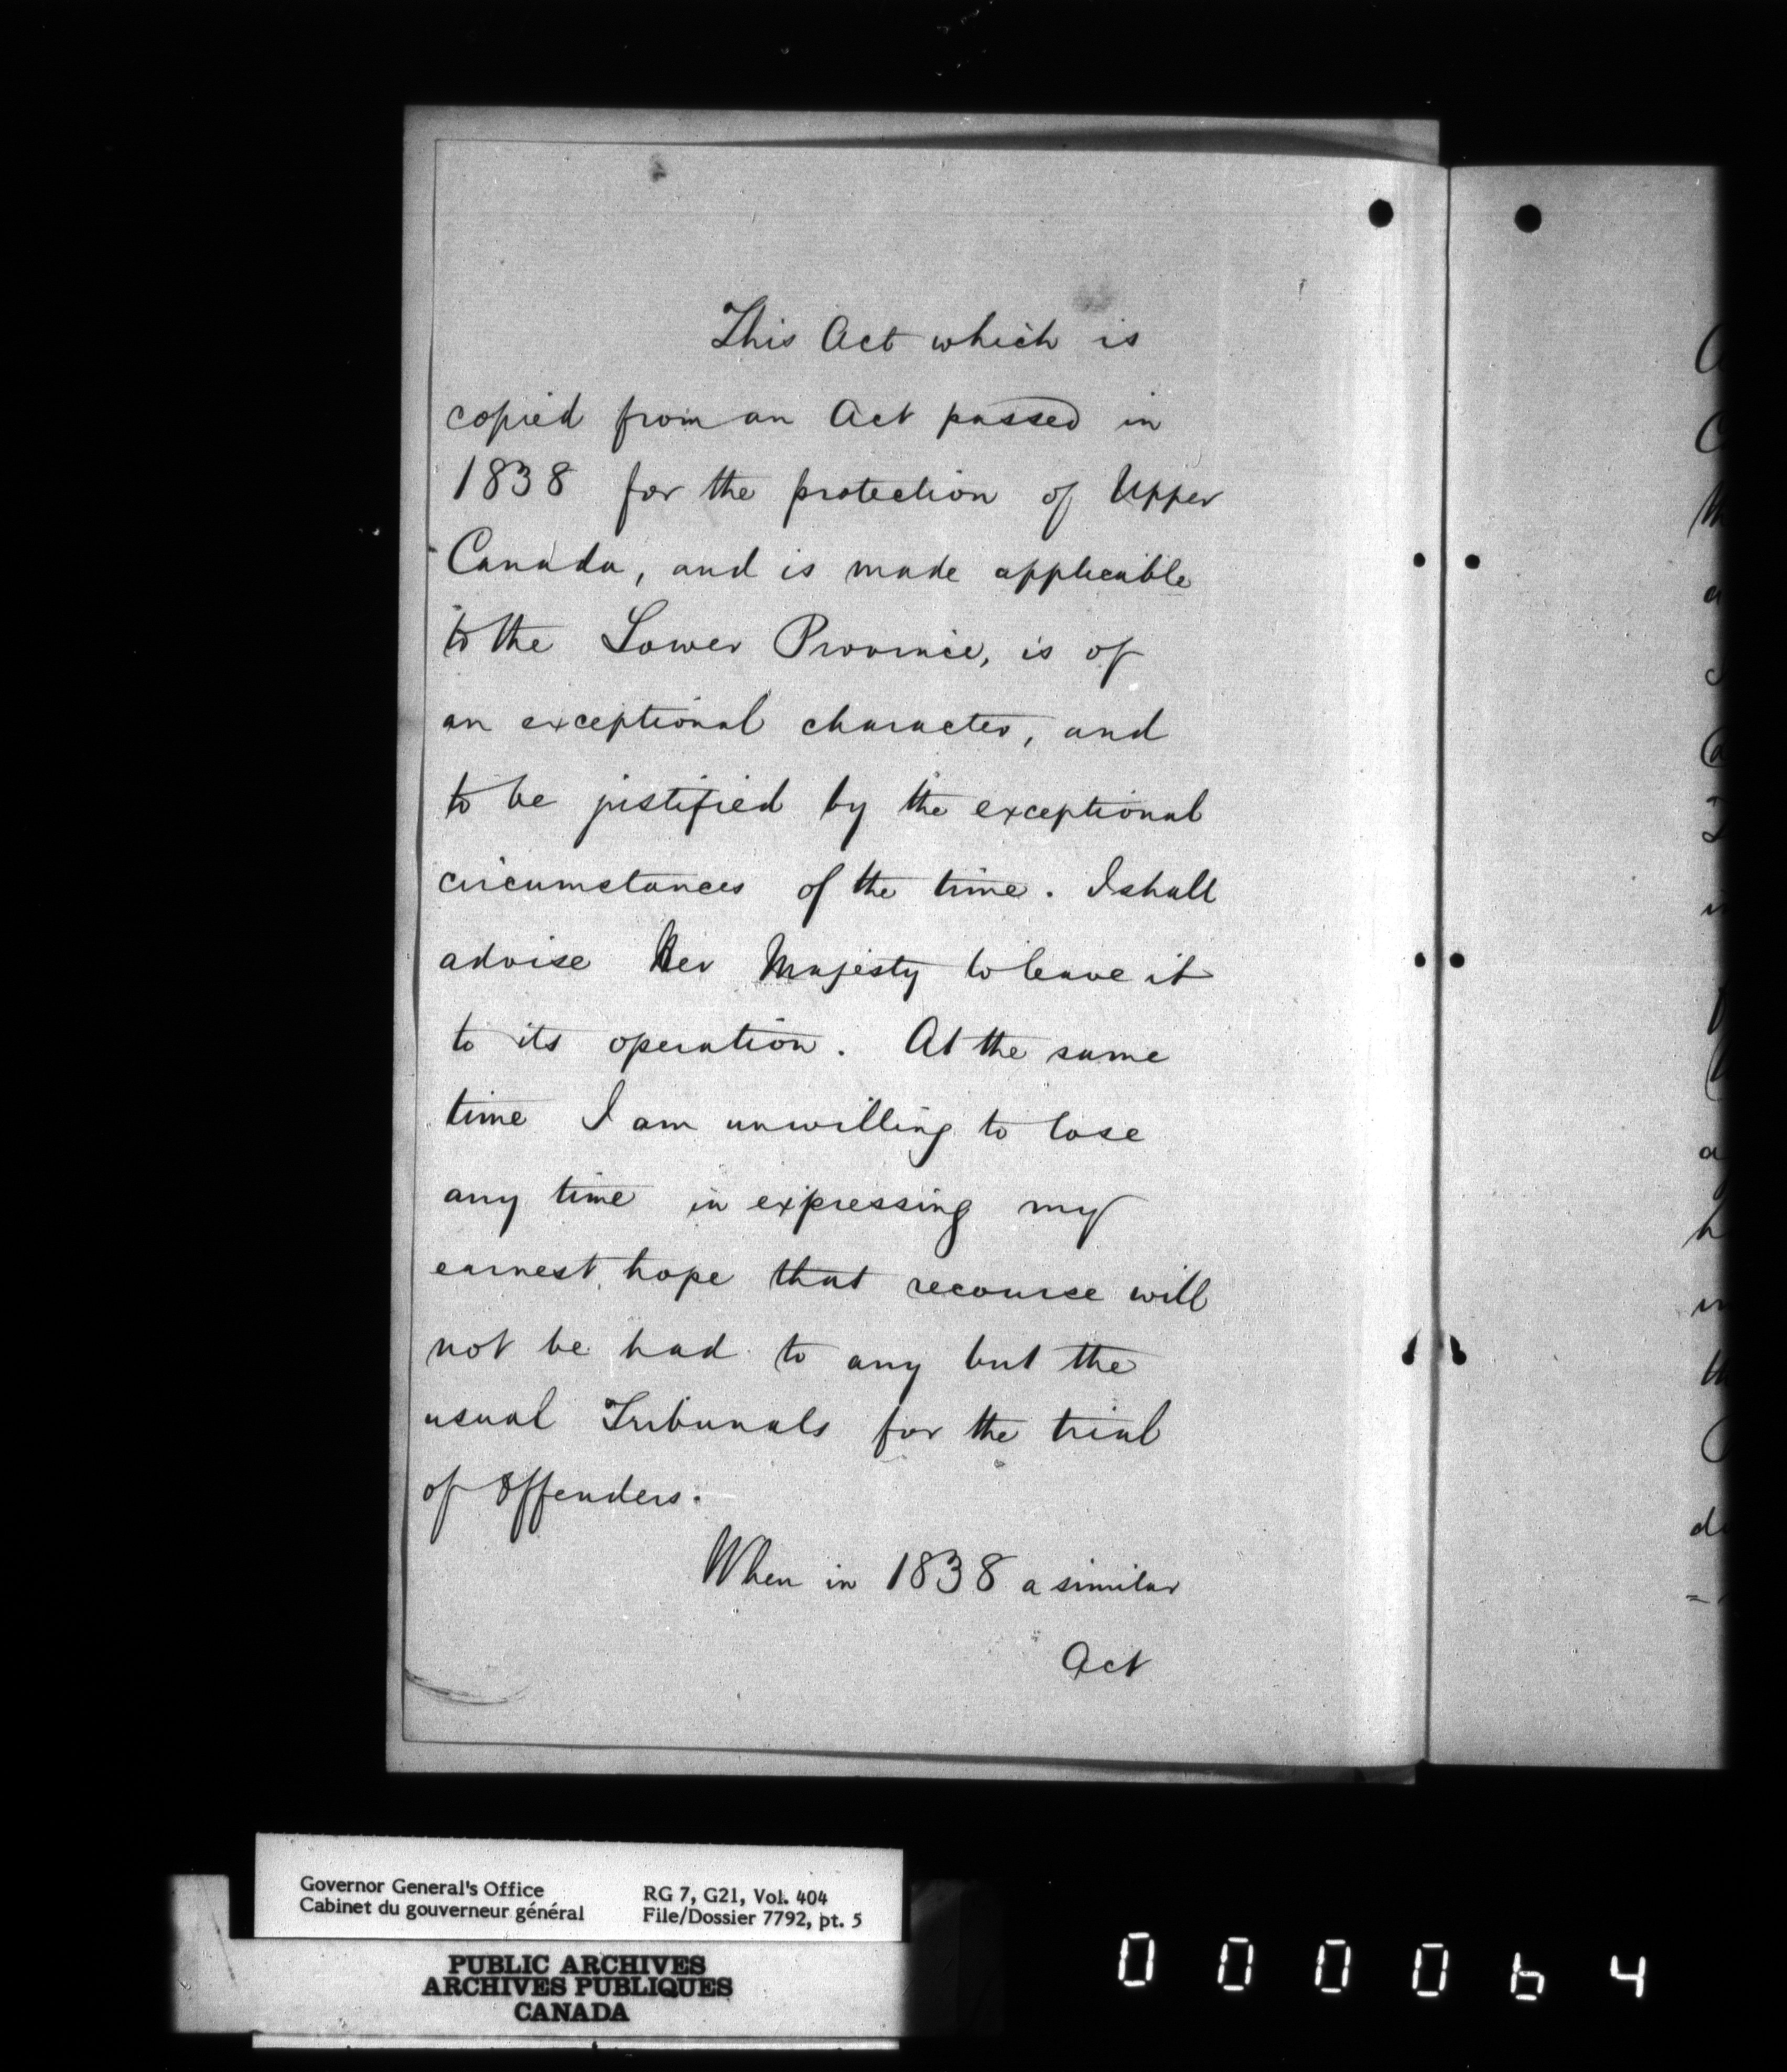 This Act which is
copied from an Act passed in
1838 for the protection of Upper
Canada, and is made applicable
to the Lower Province, is of
an exceptional character, and
to be justified by the exceptional
circumstances of the time. I shall
advise Her Majesty to leave it
to its operation. At the same
time I am unwilling to lose
any time in expressing my
earnest hope that recourse will
not be had to any but the
usual Tribunals for the trial
of Offenders.
When in 1838 a similar
Act
Governor General's Office
Cabinet du gouverneur général
RG 7, G21, Vol. 404
File/Dossier 7792, pt. 5
PUBLIC ARCHIVES
ARCHIVES PUBLIQUES
CANADA
000064